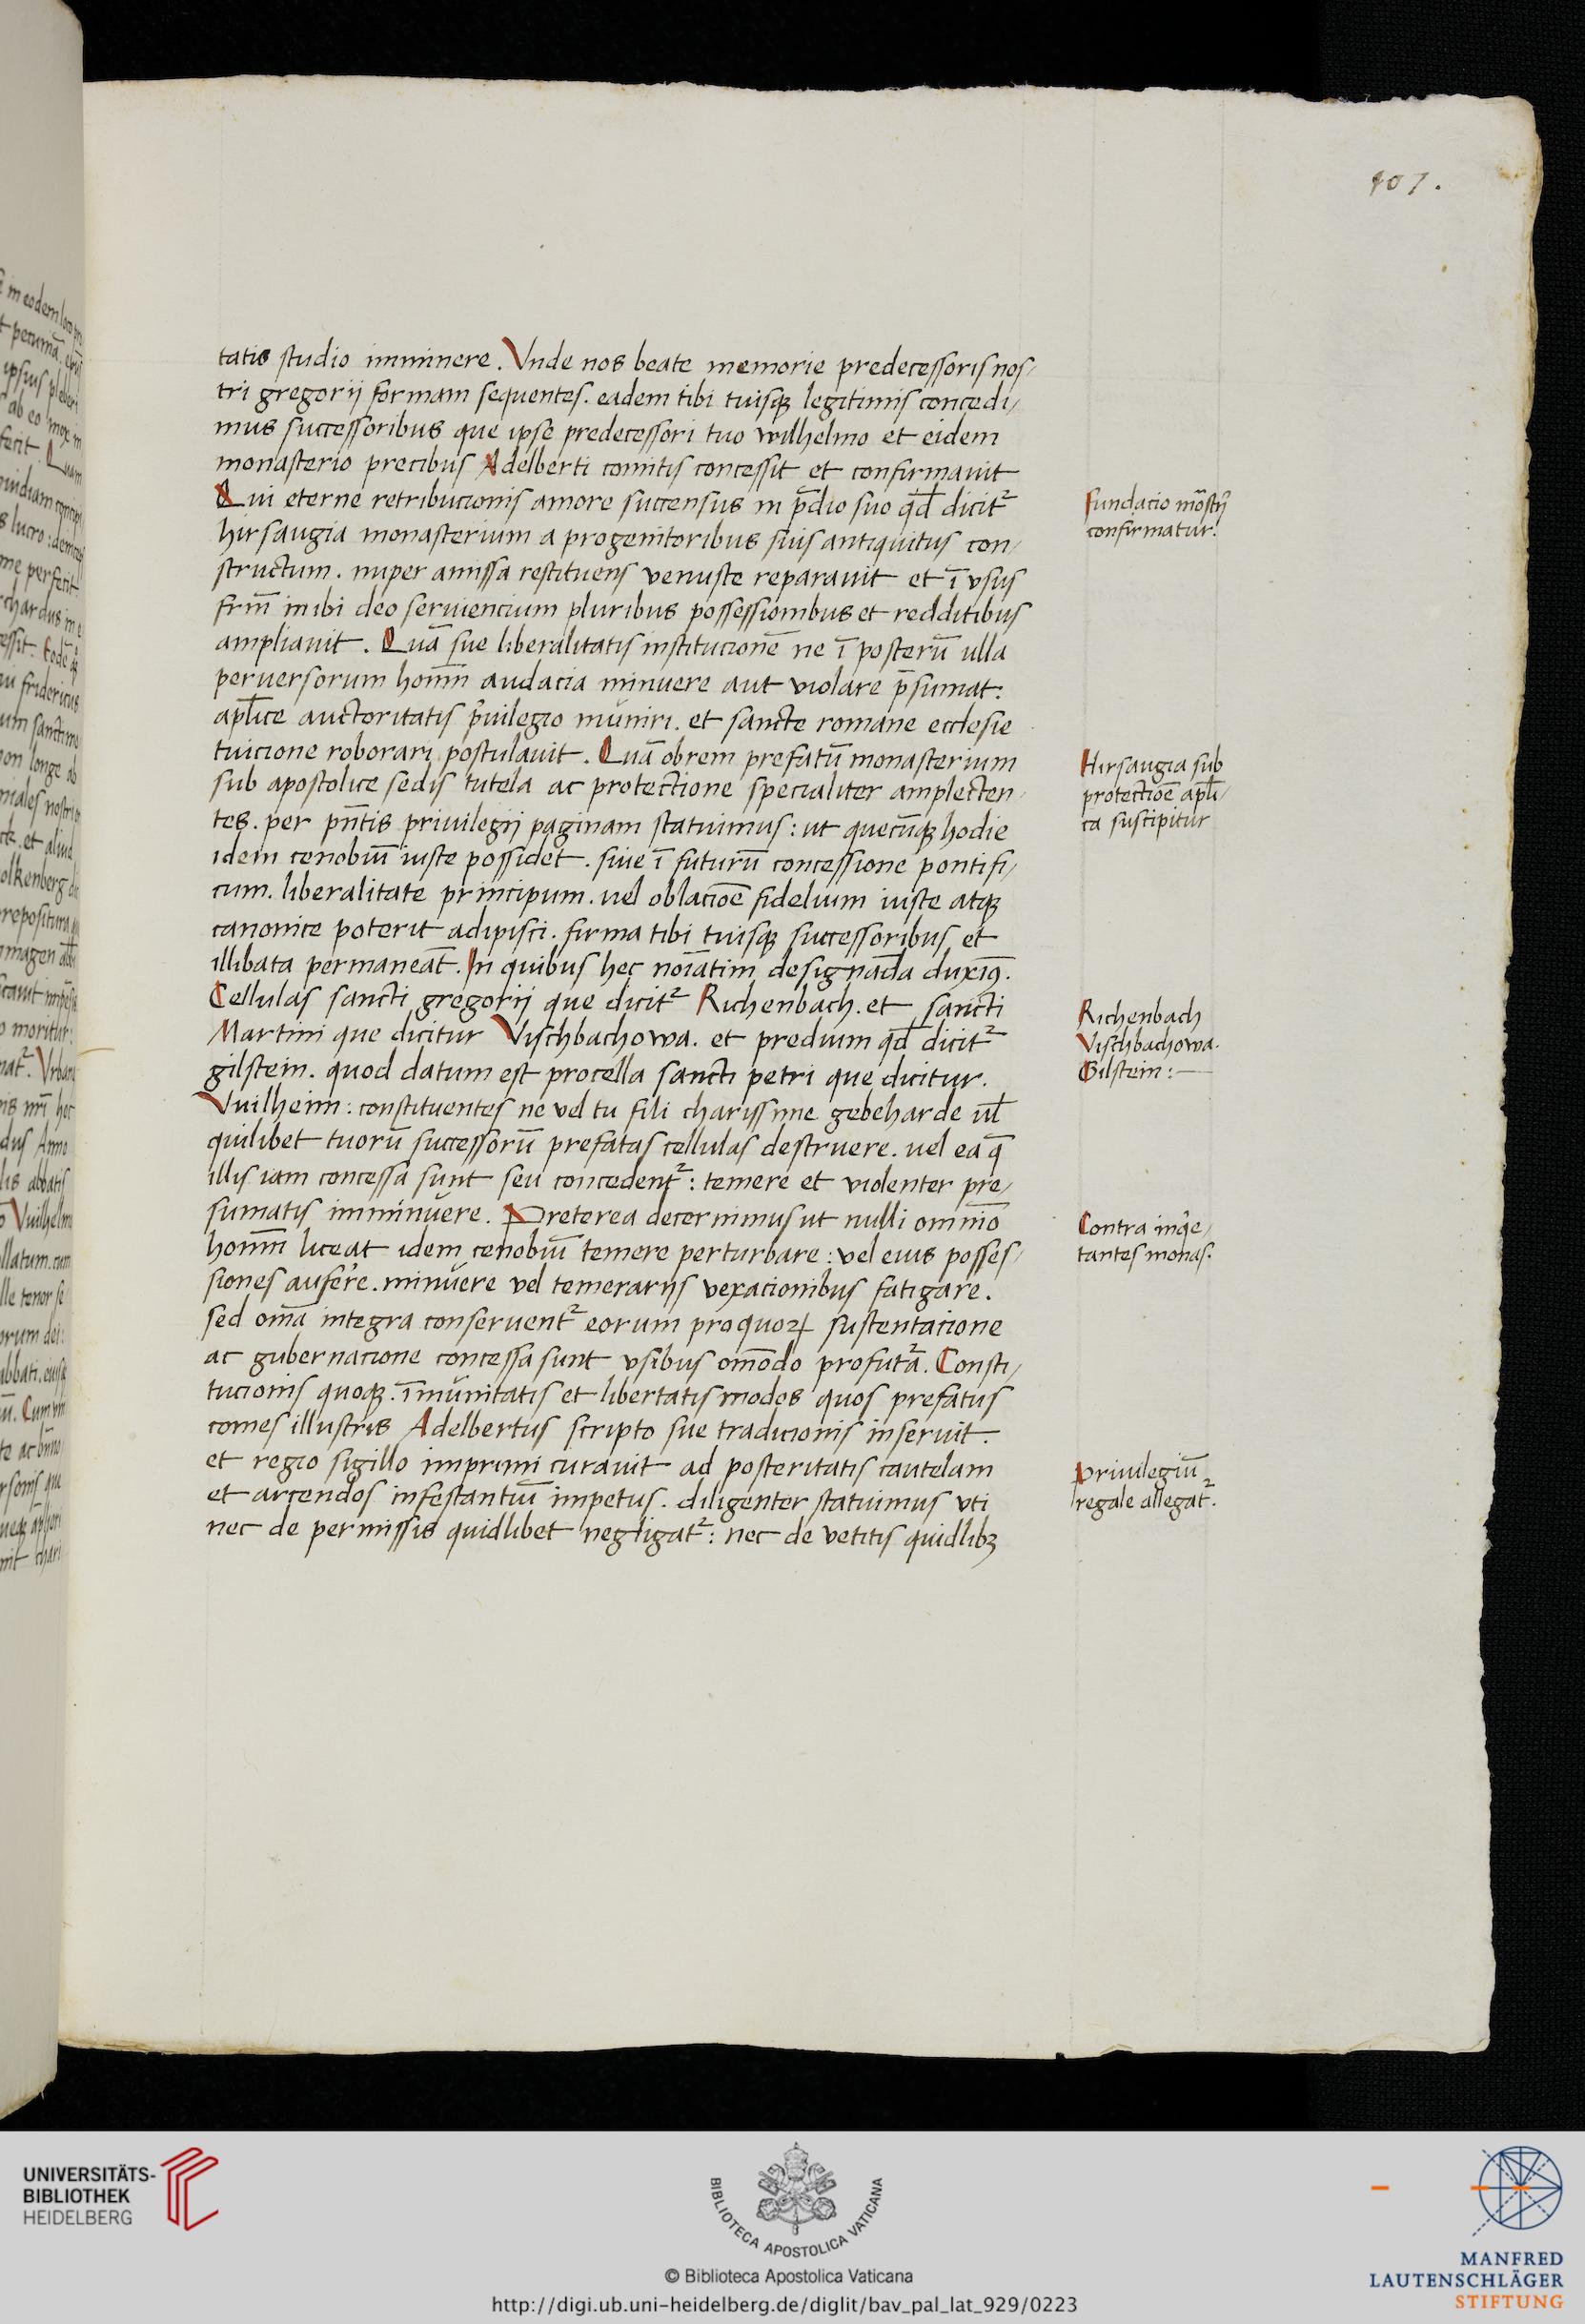 107.
tatis studio imminere. Vnde nos beate memorie predecessoris nos/
tri gregorij formam sequentes. eadem tibi tuisqꝫ legitimis concedi/
mus successoribus que ipse predecessori tuo wilhelmo et eidem
monasterio precibus Adelberti comitis concessit et confirmauit
Qui eterne retribucionis amore succensus in p̄dio suo qd̄ dicit᷑
hirsaugia monasterium a progenitoribus suis antiquitus con/
structum. nuper amissa restituens venuste reparauit et ī vsus
frm̄ inibi deo seruiencium pluribus possessionibus et redditibus
ampliauit. Quā sue liberalitatis institucionē ne ī posterū ulla
peruersorum homm̄ audacia minuere aut violare p̄sumat:
apl̄ice auctoritatis p̄uilegio muniri. et sancte romane ecclesie
tuicione roborari postulauit. Quā obrem prefatū monasterium
sub apostolice sedis tutela ac protectione specialiter amplecten/
tes. per pn̄tis priuilegij paginam statuimus: ut quecūqꝫ hodie
idem cenobiū iuste possidet. siue ī futurū concessione pontifi/
cum. liberalitate principum. vel oblacioē fidelium iuste atqꝫ
canonice poterit adipisci. firma tibi tuisqꝫ successoribus et
illibata permaneāt. In quibus hec noīatim designāda duxīꝯ.
Cellulas sancti gregorij que dicit᷑ Richenbach. et sancti
Martini que dicitur Vischbachowa. et predium qd̄ dicit᷑
gilstein. quod datum est procella sancti petri que dicitur.
Vuilheim: constituentes ne vel tu fili charissime gebeharde ul̄
quilibet tuorū successorū prefatas cellulas destruere. vel ea q̄
illis iam concessa sunt seu concedent᷑: temere et violenter pre/
sumatis imminuere. Preterea decernimus ut nulli omnīo
homm̄ liceat idem cenobiū temere perturbare: vel eius posses/
siones auferre. minuere vel temerarijs vexacionibus fatigare.
sed om̄a integra conseruent᷑ eorum pro quoꝝ sustentacione
ac gubernacione concessa sunt vsibus om̄odo profut᷑a. Consti/
tucionis quoqꝫ. īmunitatis et libertatis modos quos prefatus
comes illustris Adelbertus scripto sue tradicionis inseruit.
et regio sigillo imprimi curauit ad posteritatis cautelam
et arcendos infestantiū impetus. diligenter statuimus vti
nec de permissis quidlibet negligat᷑: nec de vetitis quidlibꝫ
Fundacio mōstrij
confirmatur.
Hirsaugia sub
protectioē apl̄i/
ca suscipitur
Richenbach
Vischbachowa.
Gilstein:—
Contra inq̇e/
tantes monas.
Priuilegiū
regale allegat᷑.
UNIVERSITÄTS-
BIBLIOTHEK
HEIDELBERG
BIBLIOTECA APOSTOLICA VATICANA
© Biblioteca Apostolica Vaticana
http://digi.ub.uni-heidelberg.de/diglit/bav_pal_lat_929/0223
MANFRED
LAUTENSCHLÄGER
STIFTUNG